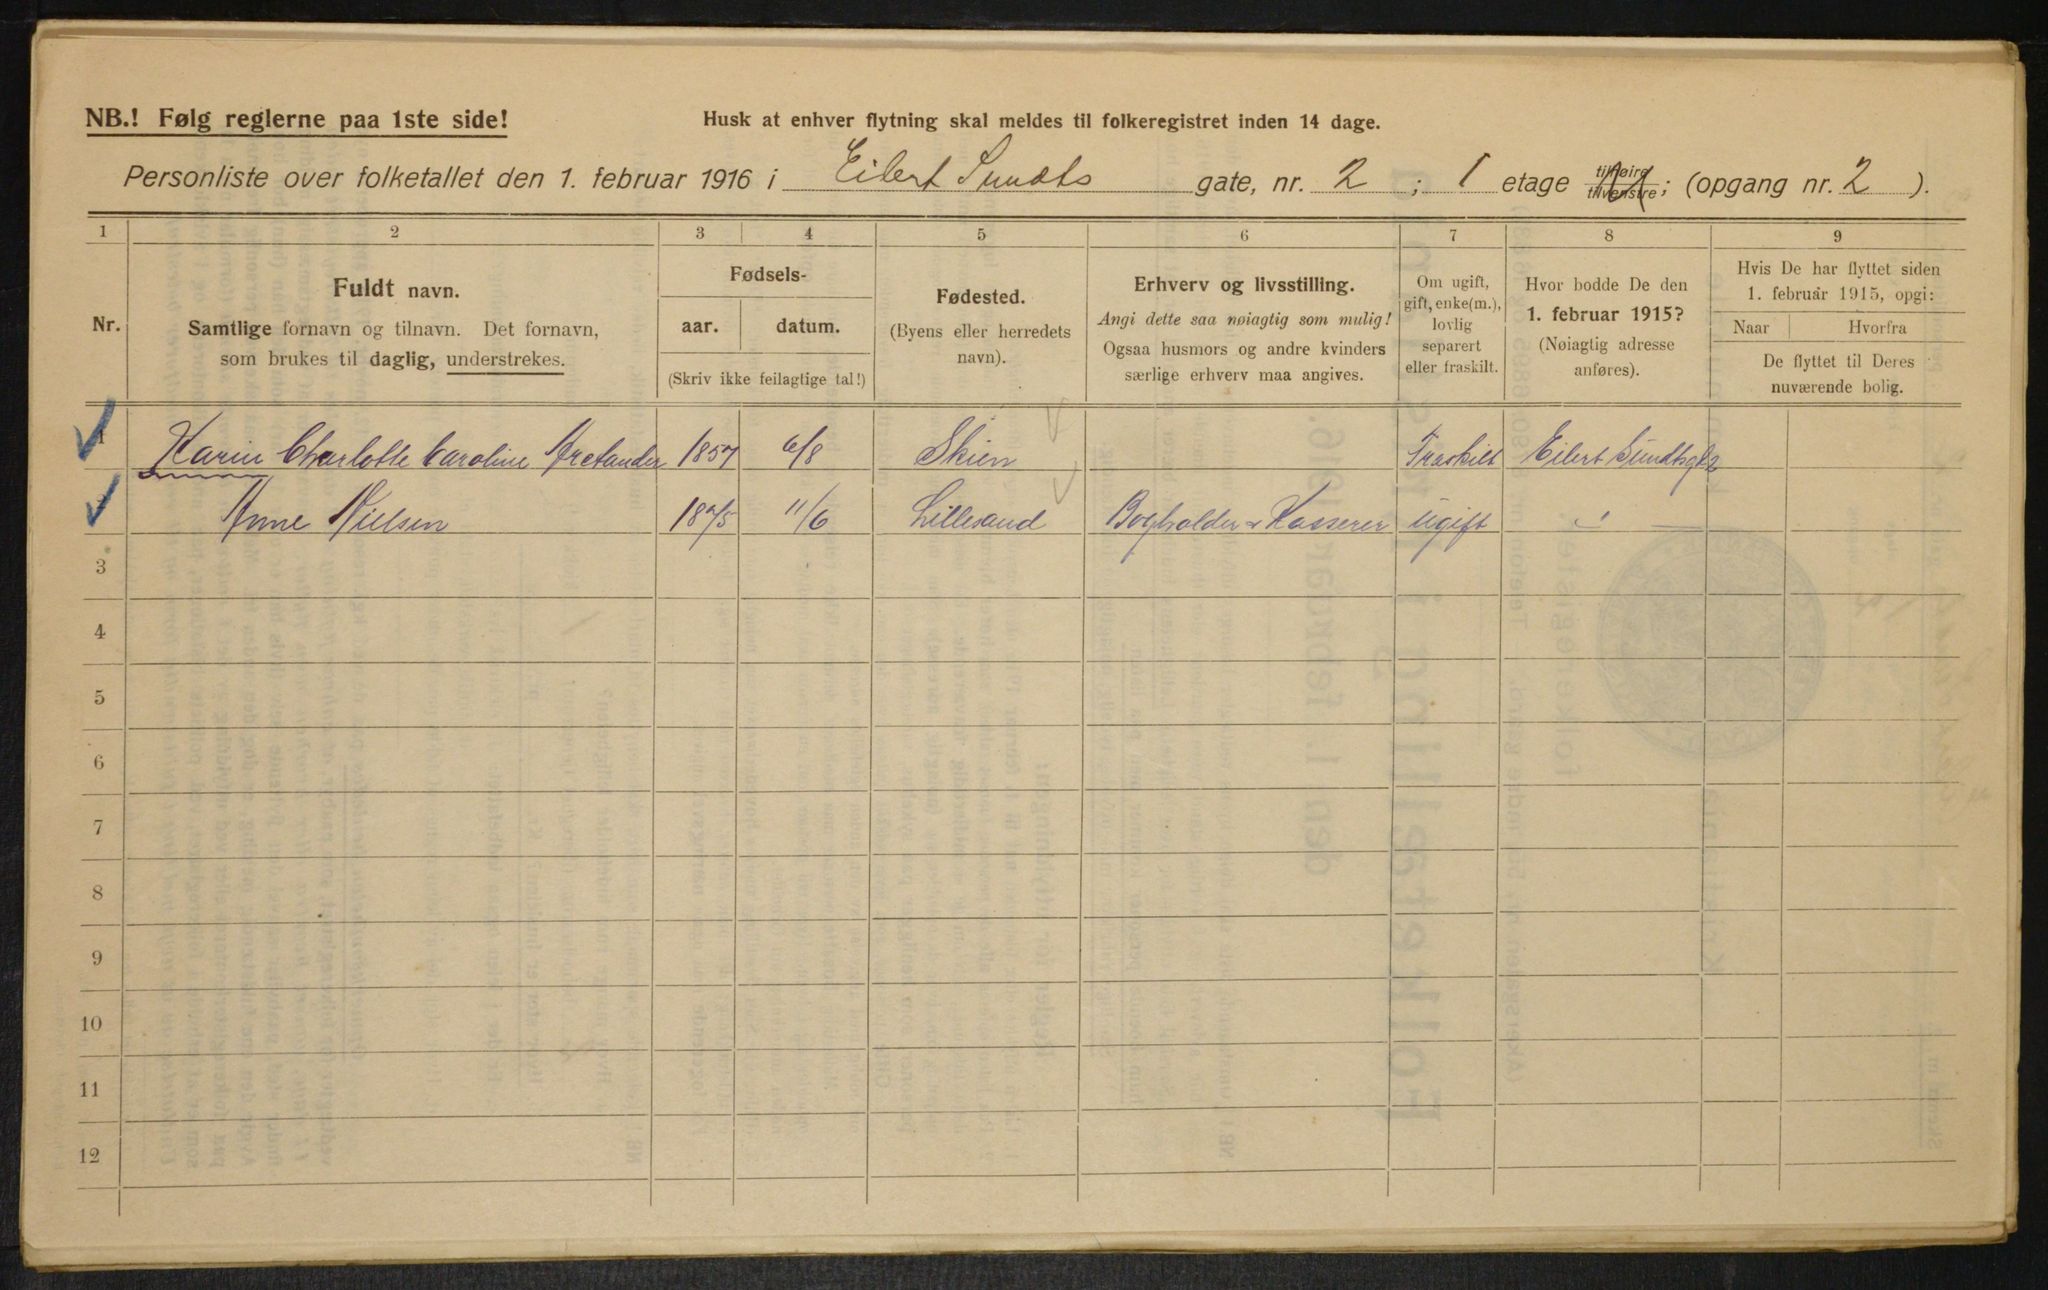 NB.! Følg reglerne paa 1ste side!
Husk at enhver flytning skal meldes til folkeregistret inden 14 dage.
Personliste over folketallet den 1. februar 1916 i Eilert Sundts gate, nr. 2 ; 1 etage tilhøire tilvenstre; (opgang nr. 2 ).
1 2 3 4 5 6 7 8 9
Nr.
Fuldt navn.
Samtlige fornavn og tilnavn. Det fornavn,
som brukes til daglig, understrekes.
Fødsels-
aar. datum.
(Skriv ikke feilagtige tal!)
Fødested.
(Byens eller herredets
navn).
Erhverv og livsstilling.
Angi dette saa nøiagtig som mulig!
Ogsaa husmors og andre kvinders
særlige erhverv maa angives.
Om ugift,
gift, enke(m.),
lovlig
separert
eller fraskilt.
Hvor bodde De den
1. februar 1915?
(Nøiagtig adresse
anføres).
Hvis De har flyttet siden
1. februar 1915, opgi:
Naar Hvorfra
De flyttet til Deres
nuværende bolig.
1 Karin Charlotte Caroline Arctander 1857 6/8 Skien Fraskilt Eilert Sundtsgt 2
2 Anne Nielsen 1875 11/6 Lillesand Bogholder & Kasserer ugift "
3
4
5
6
7
8
9
10
11
12